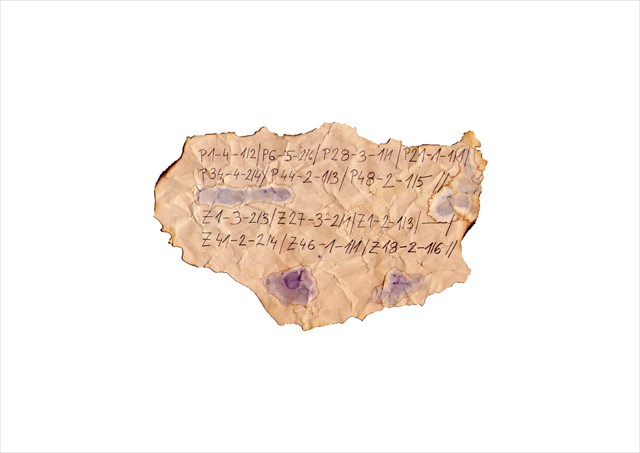 P1-4-1|2/P6-5-2|4/P28-3-1|1/P21-1-1|1/
P34-4-2|4/P44-2-1|3/P48-2-1|5//
Z1-3-2|3/Z27-3-2|1/Z1-2-1|3/——/
Z41-2-2|4/Z46-1-1|1/Z18-2-1|6//